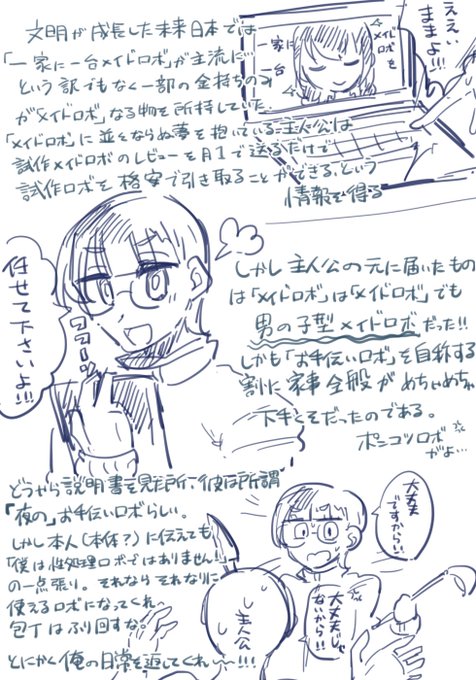 文明が成長した未来日本では
「一家に一台メイドロボ」が主流に…
という訳でもなく一部の金持ちのみ
が「メイドロボ」なる物を所持していた.
「メイドロボ」に並々ならぬ夢を抱いている主人公は
試作メイドロボのレビューを月1で送るだけで
試作ロボを格安で引き取ることができる、という
情報を得る
ええい
ままよ!!!
メイドロボを
一家に
一台
任せて下さいよ!!!
しかし主人公の元に届いたもの
は「メイドロボ」は「メイドロボ」でも
男の子型メイドロボだった!!
しかも「お手伝いロボ」を自称する
割に家事全般がめちゃめちゃ
下手くそだったのである。
ポンコツロボ
がよ…
どうやら説明書を見た所、彼は所謂
「夜の」お手伝いロボらしい。
しかし本人(本体?)に伝えても
「僕は性処理ロボではありません!」
の一点張り。それならそれなりに
使えるロボになってくれ。
包丁はふり回すな。
とにかく俺の日常を返してくれ〜!!!
大丈夫
ですから!!
大丈夫じゃ
ないから!!
主人公